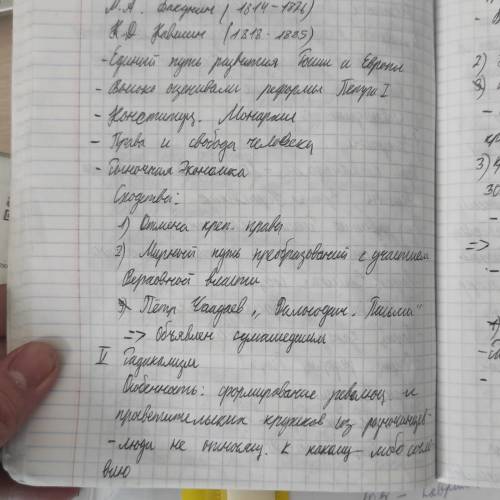 М.А. Бакунин (1814-1876)
К.Д Кавелин (1818-1885)
- Единый путь развития России и Европы
- Высоко оценивали реформы Петра I
- Конституц. Монархия
- Права и свободы человека
- Рыночная Экономика
Сходства:
1) Отмена креп. права
2) Мирный путь преобразований с участием
Верховной власти
Пётр Чаадаев „ Письма"
=> Объявлен сумасшедшим
V Радикализм
Особенность: сформирование революц. и
просветительских кружков из разночинцев-
- люди не относящ. к какому-либо сосло
вию
2)
3)
=>